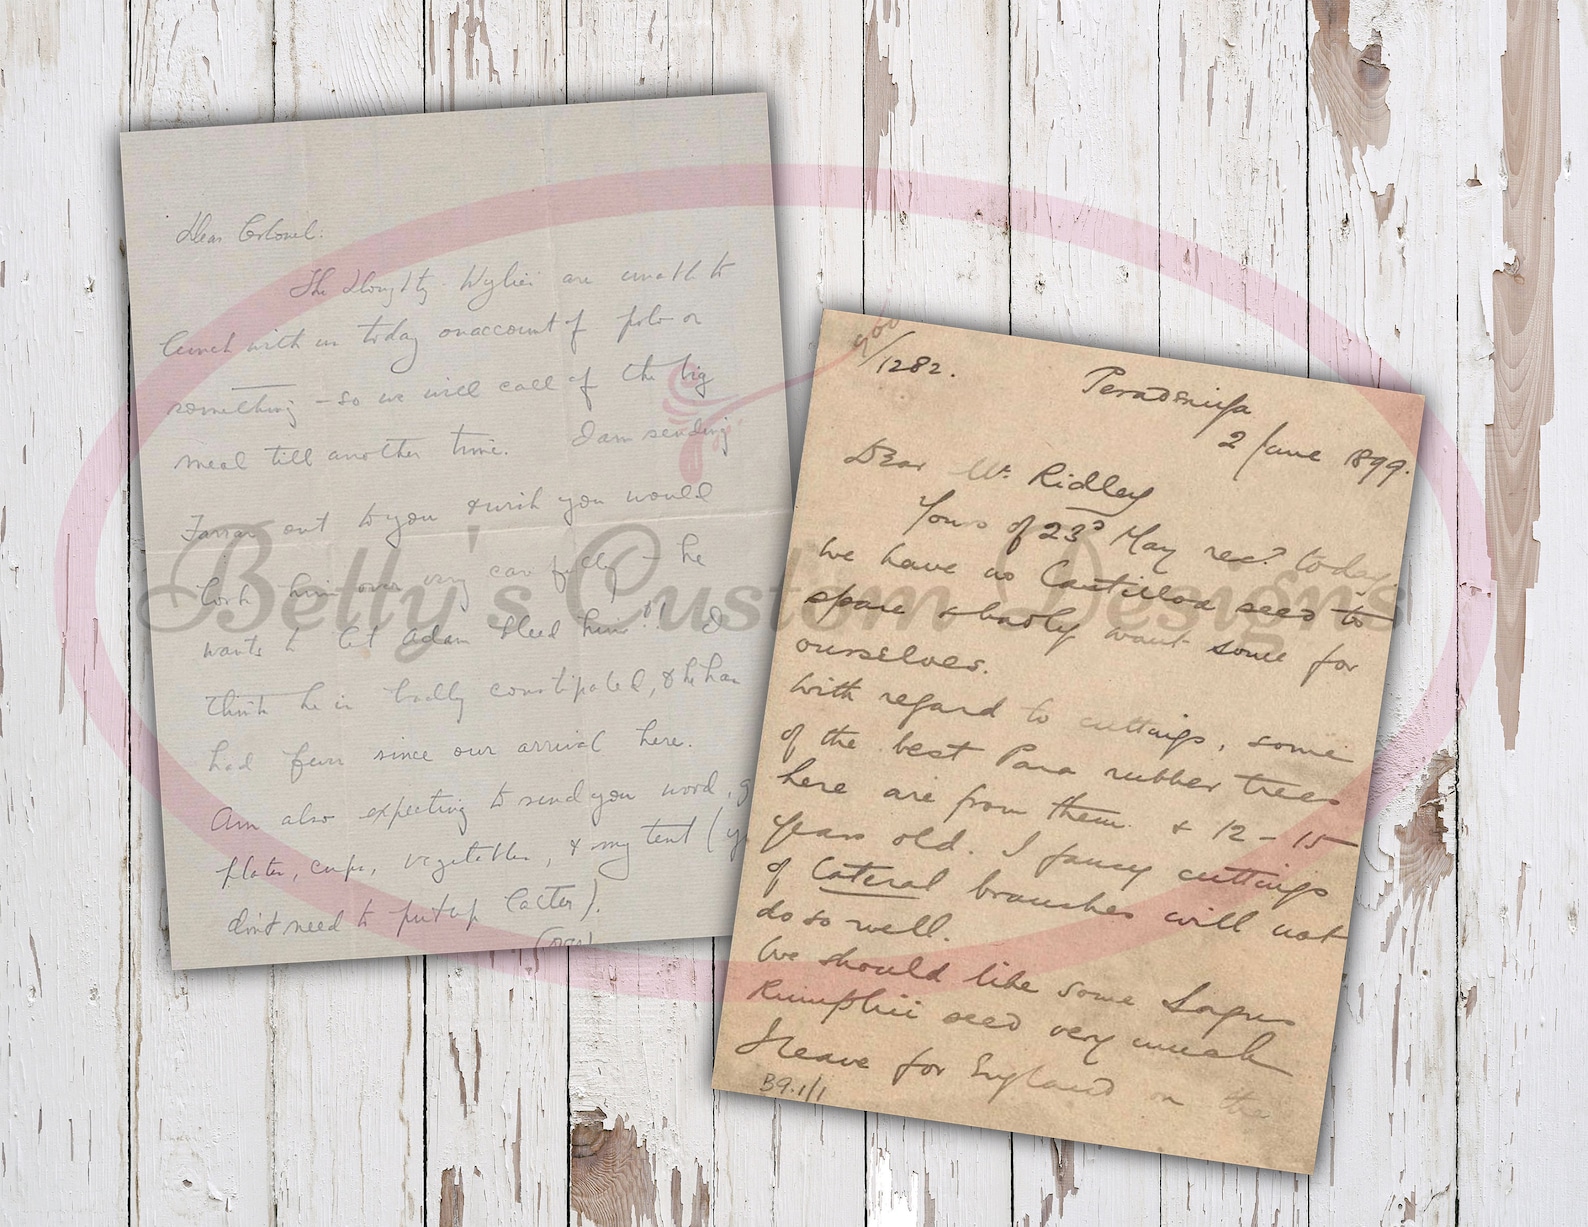 Dear Colonel.
The Doughty-Wylies are unable to
lunch with us today on account of polo or
something – so we will call off the big
meal till another time. I am sending
Farrar out to you & wish you would
look him over very carefully – he
wants to let Adam bleed him!! I
think he is badly constipated, & he has
had fever since our arrival here.
Am also expecting to send you word,
plates, cups, vegetables, & my tent (
don't need to put up
(over)
/1282.
Peradeniya
2 June 1899.
Dear Mr. Ridley
Yours of 23d May recd. today.
We have no Castilloa seed to
spare & badly want some for
ourselves.
With regard to cuttings, some
of the best Para rubber trees
here are from them & 12–15
years old. I fancy cuttings
of lateral branches will not
do so well.
We should like some Sagus
Rumphii seed very much
I leave for England on the
B9.1/1
Belly's Custom Designs